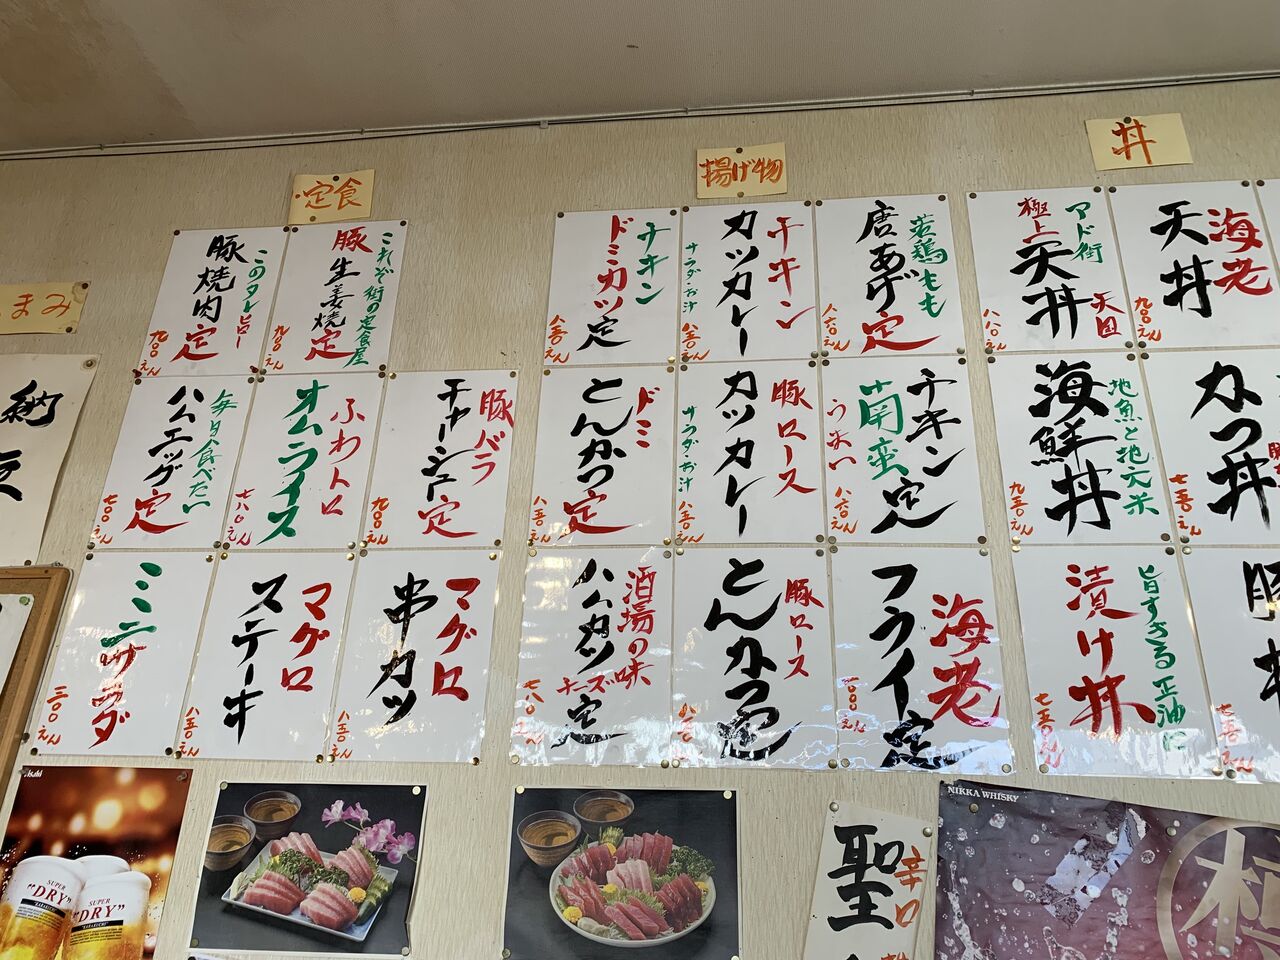 定食
揚げ物
丼
まみ
これぞ街の定食屋
豚生姜焼定
九〇〇えん
このタレヒロー
豚焼肉定
九〇〇えん
豚バラ
チャーシュー定
九〇〇えん
ふわトロ
オムライス
七八〇えん
毎日食べたい
ハムエッグ定
七〇〇えん
マグロ
串カツ
八五〇えん
マグロ
ステーキ
八五〇えん
ミニサラダ
三〇〇えん
若鶏もも
唐あげ定
八六〇えん
チキン
カツカレー
サラダ・お汁
八五〇えん
チキン
ドミカツ定
八五〇えん
チキン
南蛮定
うまい
八六〇えん
豚ロース
カツカレー
サラダ・お汁
八五〇えん
ドミ
とんかつ定
八五〇えん
海老
フライ定
豚ロース
とんかつ定
酒場の味
ハムカツ定
チーズ
七八〇えん
海老
天丼
九〇〇えん
アド街
極上天丼
天国
かつ丼
七五〇えん
地魚と地元米
海鮮丼
九五〇えん
旨すぎる正油に
漬け丼
七五〇えん
豚丼
納豆
Asahi
SUPER
"DRY"
SUPER
"DRY"
聖
辛口
NIKKA WHISKY
極